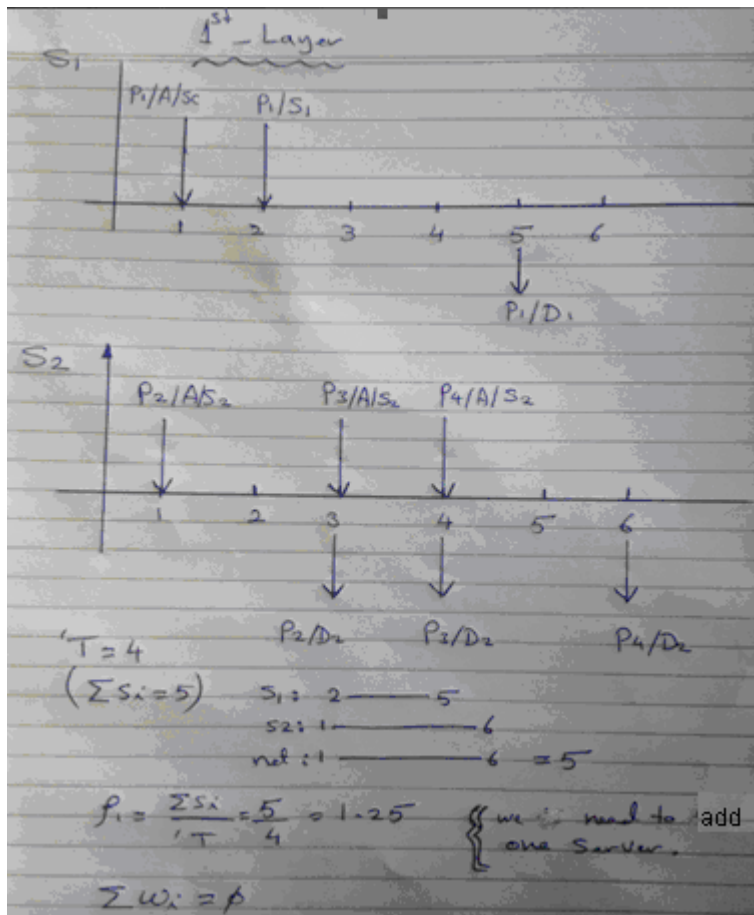 1st - Layer
S1
P1/A/Sc
P1/S1
1 2 3 4 5 6
P1/D1
S2
P2/A/S2 P3/A/S2 P4/A/S2
1 2 3 4 5 6
P2/D2 P3/D2 P4/D2
'T = 4
(ΣSi = 5)
S1: 2 —— 5
S2: 1 —— 6
net: 1 —— 6 = 5
ρ1 = ΣSi/'T = 5/4 = 1.25
{ we need to add
one server.
Σwi = φ